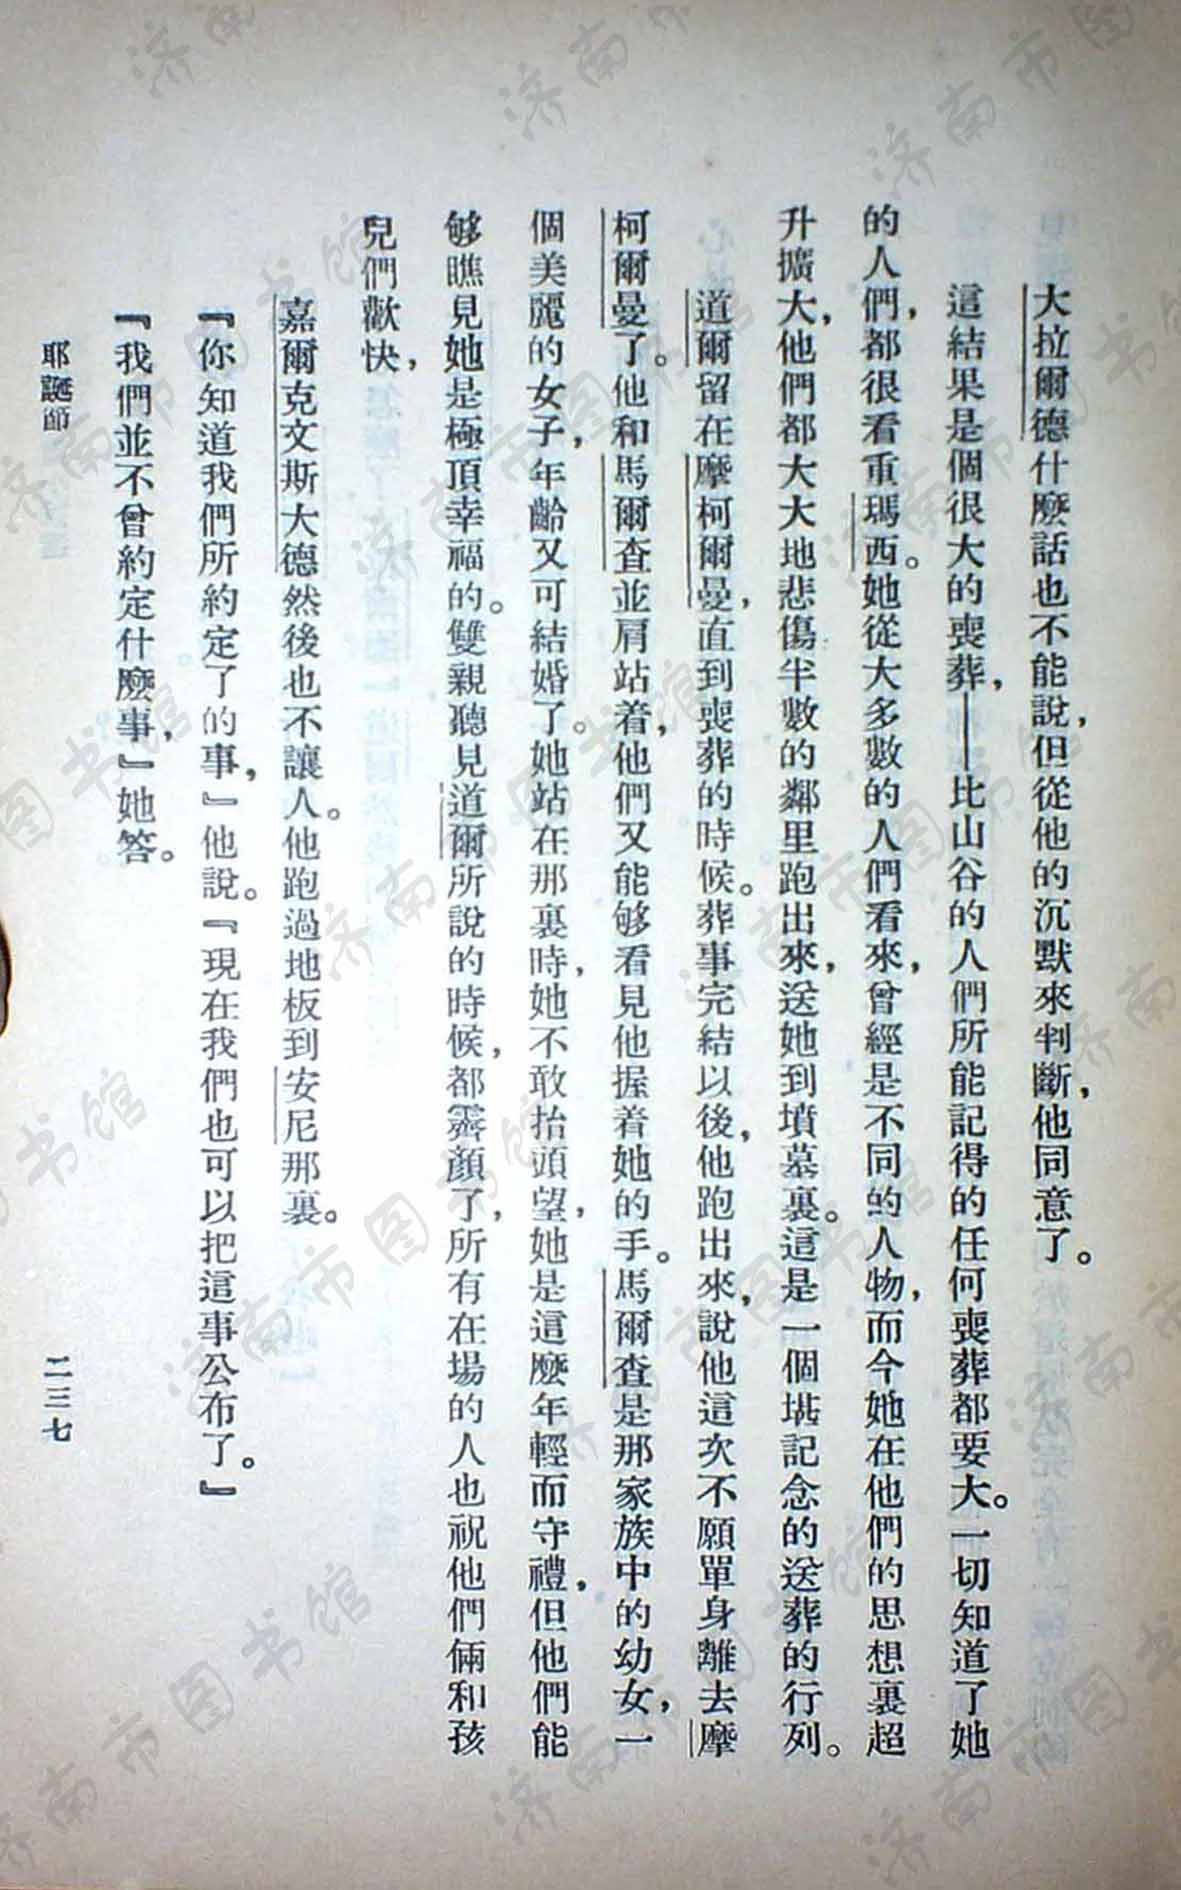 大拉爾德什麼話也不能說，但從他的沉默來判斷，他同意了。
這結果是個很大的喪葬，——比山谷的人們所能記得的任何喪葬都要大。一切知道了她
的人們，都很看重瑪西。她從大多數的人們看來，曾經是不同的人物，而今她在他們的思想裏超
升擴大，他們都大大地悲傷半數的鄰里跑出來，送她到墳墓裏。這是一個堪記念的送葬的行列。
道爾留在摩柯爾曼，直到喪葬的時候。葬事完結以後，他跑出來，說他這次不願單身離去摩
柯爾曼了。他和馬爾查並肩站着，他們又能够看見他握着她的手。馬爾查是那家族中的幼女，一
個美麗的女子，年齡又可結婚了。她站在那裏時，她不敢抬頭望，她是這麼年輕而守禮，但他們能
够瞧見她是極頂幸福的。雙親聽見道爾所說的時候，都霽顏了，所有在場的人也祝他們倆和孩
兒們歡快，
嘉爾克文斯大德然後也不讓人。他跑過地板到安尼那裏。
『你知道我們所約定了的事，』他說。『現在我們也可以把這事公布了。』
『我們並不曾約定什麼事，』她答。
耶誕節
二三七
济南市图书馆